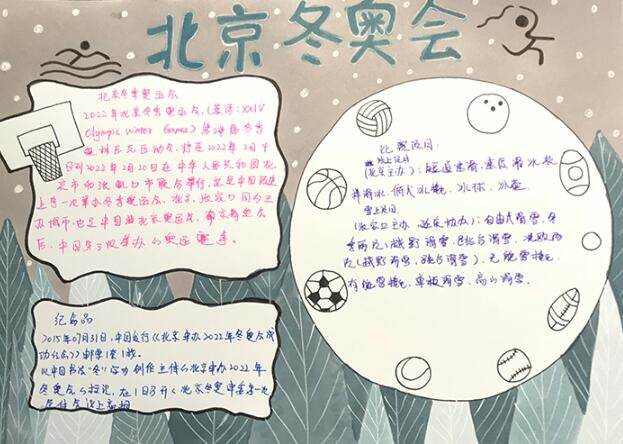 北京冬奥会
北京冬季奥运会
2022年北京冬季奥运会,(英语:XXIV
Olympic Winter Games) 第24届冬季
奥林匹克运动会,将在2022年2月4
日到2022年2月20日在中华人民共和国北
京市和张家口市联合举行,这是中国历史
上第一次举办冬季奥运会,北京、张家口同为主
办城市,也是中国继北京奥运会,
后,中国第三次举办的奥运赛事。
纪念品
2015年07月31日,中国发行《北京申办2022年冬奥会成
功纪念》邮票1套1枚。
以中国书法"冬"字为创作主体的北京申办2022年
冬奥会的标识,在
比赛项目:
冰上项目
(北京主办):短道速滑,速度滑冰,花
样滑冰,冰球,冰壶
雪上项目
(张家口主办,延庆协办):自由式滑雪,冬
季两项(越野滑雪,跳台滑雪,
(越野滑雪,跳台滑雪),无舵雪橇,
有舵雪橇,单板滑雪,高山滑雪。